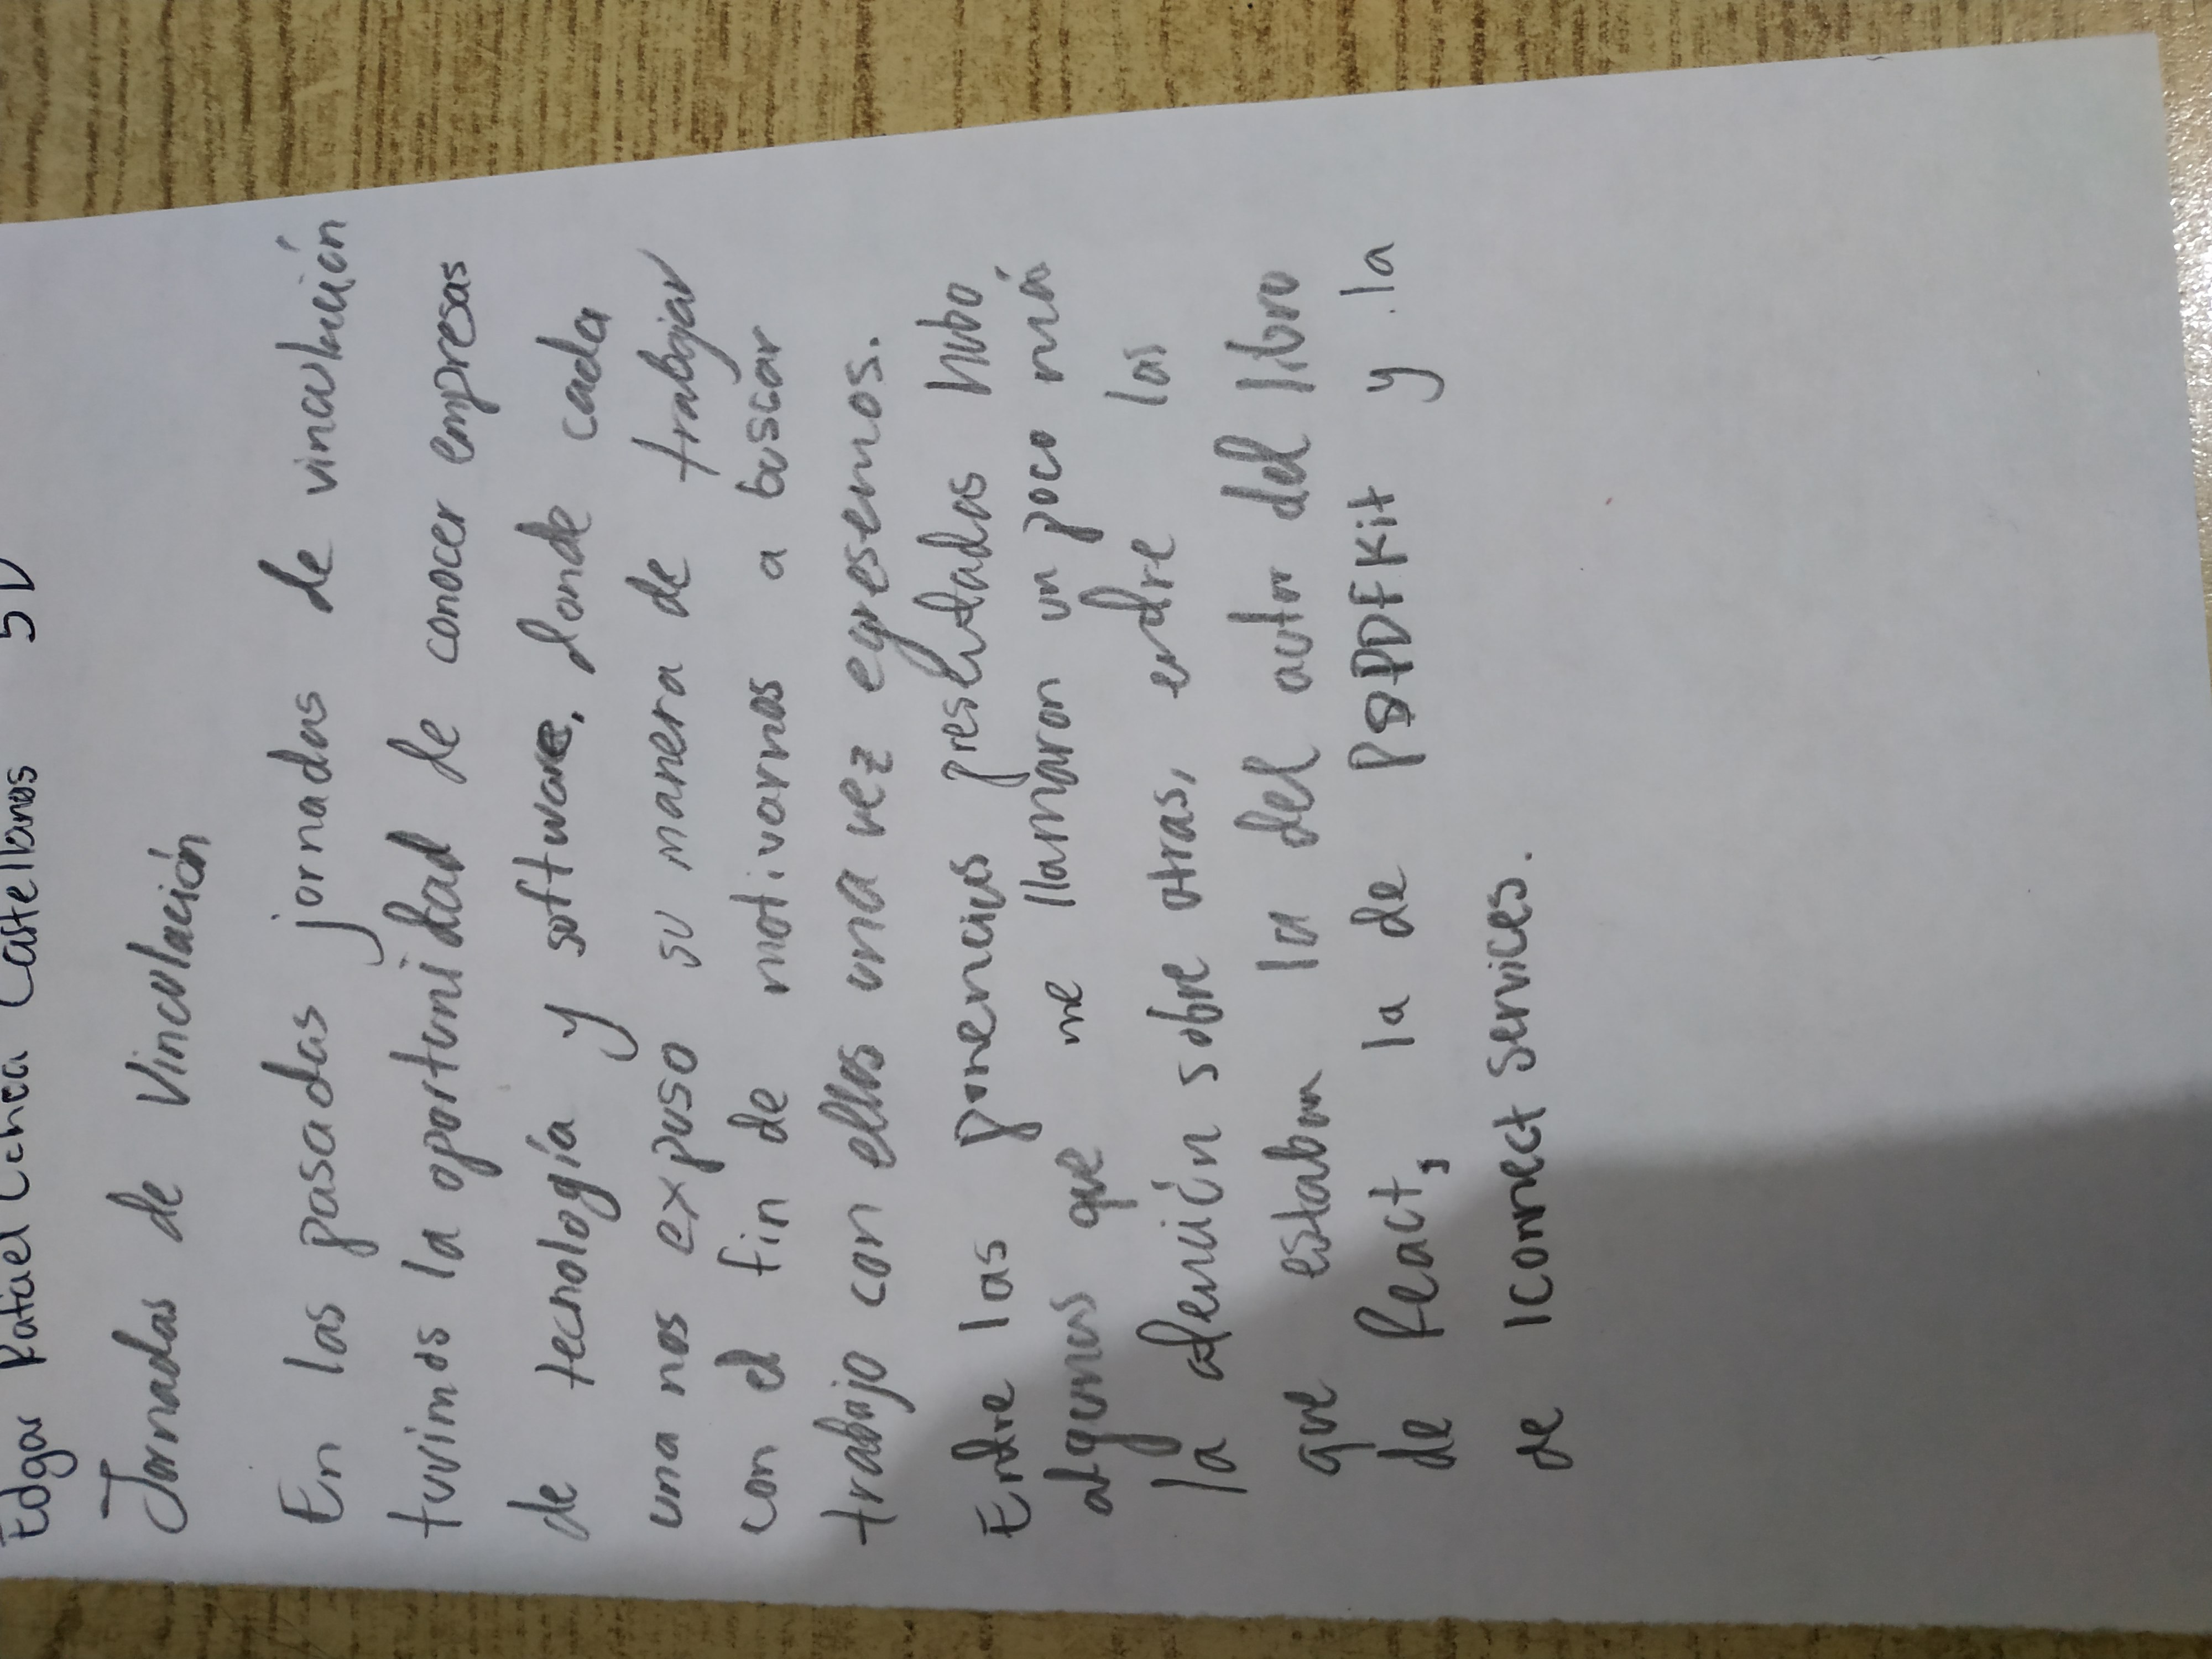 Edgar Rafael Ochoa Castellanos 5D
Jornadas de Vinculación
En las pasadas jornadas de vinculación
tuvimos la oportunidad de conocer empresas
de tecnología y software, donde cada
una nos expuso su manera de trabajar
con el fin de motivarnos a buscar
trabajo con ellos una vez egresemos.
Entre las ponencias presentadas hubo
algunas que me llamaron un poco más
la atención sobre otras, entre las
que estaban la del autor del libro
de React, la de PSPDFKit y la
de Iconnect Services.